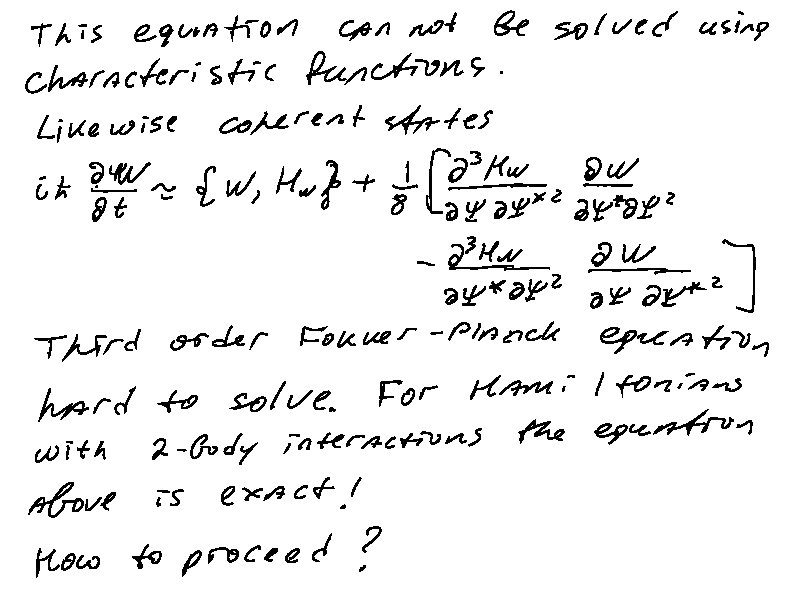 This equation can not be solved using
characteristic functions.
Likewise coherent states
iħ ∂W/∂t ≈ {W, H_W} + 1/8 [ ∂³H_W/∂ψ∂ψ*² ∂W/∂ψ*∂ψ²
− ∂³H_W/∂ψ*∂ψ² ∂W/∂ψ∂ψ*² ]
Third order Fokker-Planck equation
hard to solve. For Hamiltonians
with 2-body interactions the equation
above is exact!
How to proceed?